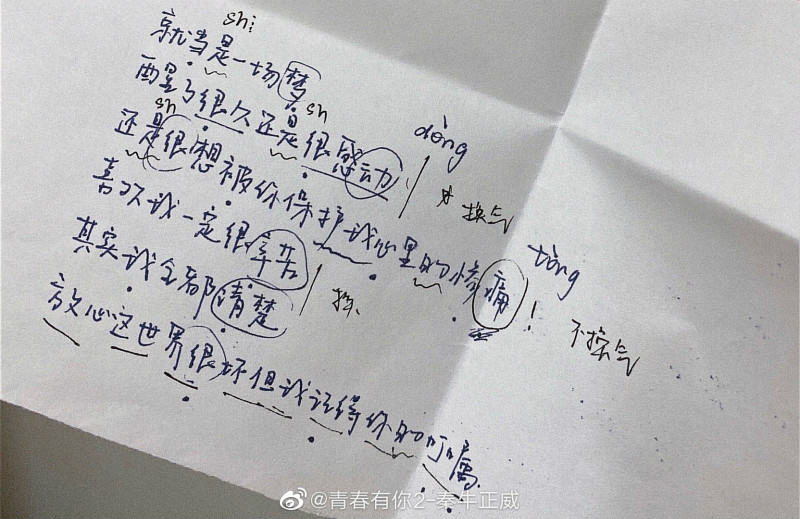 shi
就当是一场梦
sh
醒了很久还是很感动
sh
dòng
还是很想被你保护我心里的惨痛
不换气
tòng
喜欢我一定很辛苦
其实我全部清楚
换
！
不换气
放心这世界很坏但我记得你的叮嘱
@青春有你2-秦牛正威